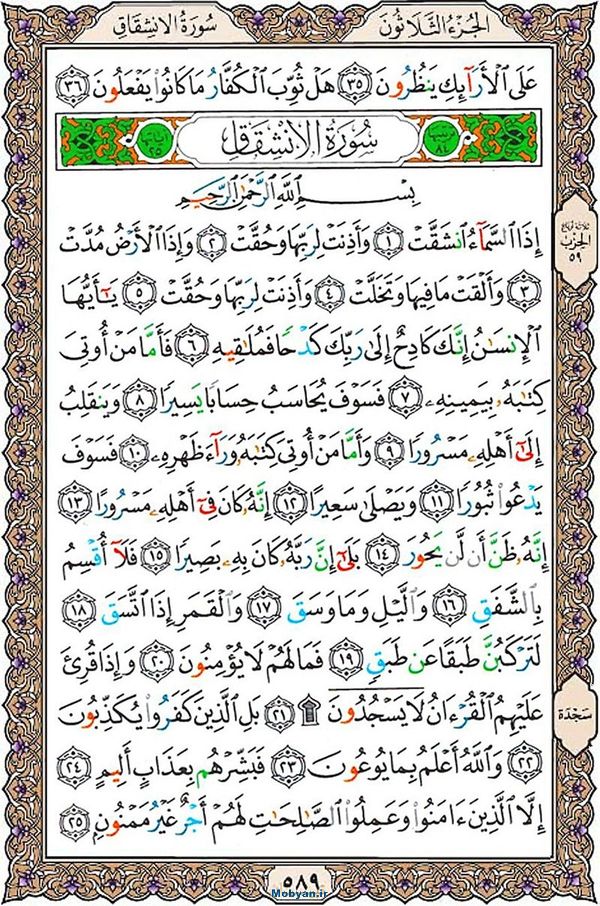 الجُزءُ الثَّلاثُونَ
سُورَةُ الانشِقَاقِ
عَلَى ٱلْأَرَآئِكِ يَنظُرُونَ ٣٥ هَلْ ثُوِّبَ ٱلْكُفَّارُ مَا كَانُوا۟ يَفْعَلُونَ ٣٦
ترتيبها ٨٤
سُورَةُ الانشِقَاقِ
آياتها ٢٥
بِسْمِ ٱللَّهِ ٱلرَّحْمَٰنِ ٱلرَّحِيمِ
إِذَا ٱلسَّمَآءُ ٱنشَقَّتْ ١ وَأَذِنَتْ لِرَبِّهَا وَحُقَّتْ ٢ وَإِذَا ٱلْأَرْضُ مُدَّتْ
٣ وَأَلْقَتْ مَا فِيهَا وَتَخَلَّتْ ٤ وَأَذِنَتْ لِرَبِّهَا وَحُقَّتْ ٥ يَٰٓأَيُّهَا
ٱلْإِنسَٰنُ إِنَّكَ كَادِحٌ إِلَىٰ رَبِّكَ كَدْحًا فَمُلَٰقِيهِ ٦ فَأَمَّا مَنْ أُوتِىَ
كِتَٰبَهُۥ بِيَمِينِهِۦ ٧ فَسَوْفَ يُحَاسَبُ حِسَابًا يَسِيرًا ٨ وَيَنقَلِبُ
إِلَىٰٓ أَهْلِهِۦ مَسْرُورًا ٩ وَأَمَّا مَنْ أُوتِىَ كِتَٰبَهُۥ وَرَآءَ ظَهْرِهِۦ ١٠ فَسَوْفَ
يَدْعُوا۟ ثُبُورًا ١١ وَيَصْلَىٰ سَعِيرًا ١٢ إِنَّهُۥ كَانَ فِىٓ أَهْلِهِۦ مَسْرُورًا ١٣
إِنَّهُۥ ظَنَّ أَن لَّن يَحُورَ ١٤ بَلَىٰٓ إِنَّ رَبَّهُۥ كَانَ بِهِۦ بَصِيرًا ١٥ فَلَآ أُقْسِمُ
بِٱلشَّفَقِ ١٦ وَٱلَّيْلِ وَمَا وَسَقَ ١٧ وَٱلْقَمَرِ إِذَا ٱتَّسَقَ ١٨
لَتَرْكَبُنَّ طَبَقًا عَن طَبَقٍ ١٩ فَمَا لَهُمْ لَا يُؤْمِنُونَ ٢٠ وَإِذَا قُرِئَ
عَلَيْهِمُ ٱلْقُرْءَانُ لَا يَسْجُدُونَ ۩ ٢١ بَلِ ٱلَّذِينَ كَفَرُوا۟ يُكَذِّبُونَ
٢٢ وَٱللَّهُ أَعْلَمُ بِمَا يُوعُونَ ٢٣ فَبَشِّرْهُم بِعَذَابٍ أَلِيمٍ ٢٤
إِلَّا ٱلَّذِينَ ءَامَنُوا۟ وَعَمِلُوا۟ ٱلصَّٰلِحَٰتِ لَهُمْ أَجْرٌ غَيْرُ مَمْنُونٍۭ ٢٥
ثلاثة أرباع
الحِزْب
٥٩
سَجْدَة
٥٨٩
Mobyan.ir